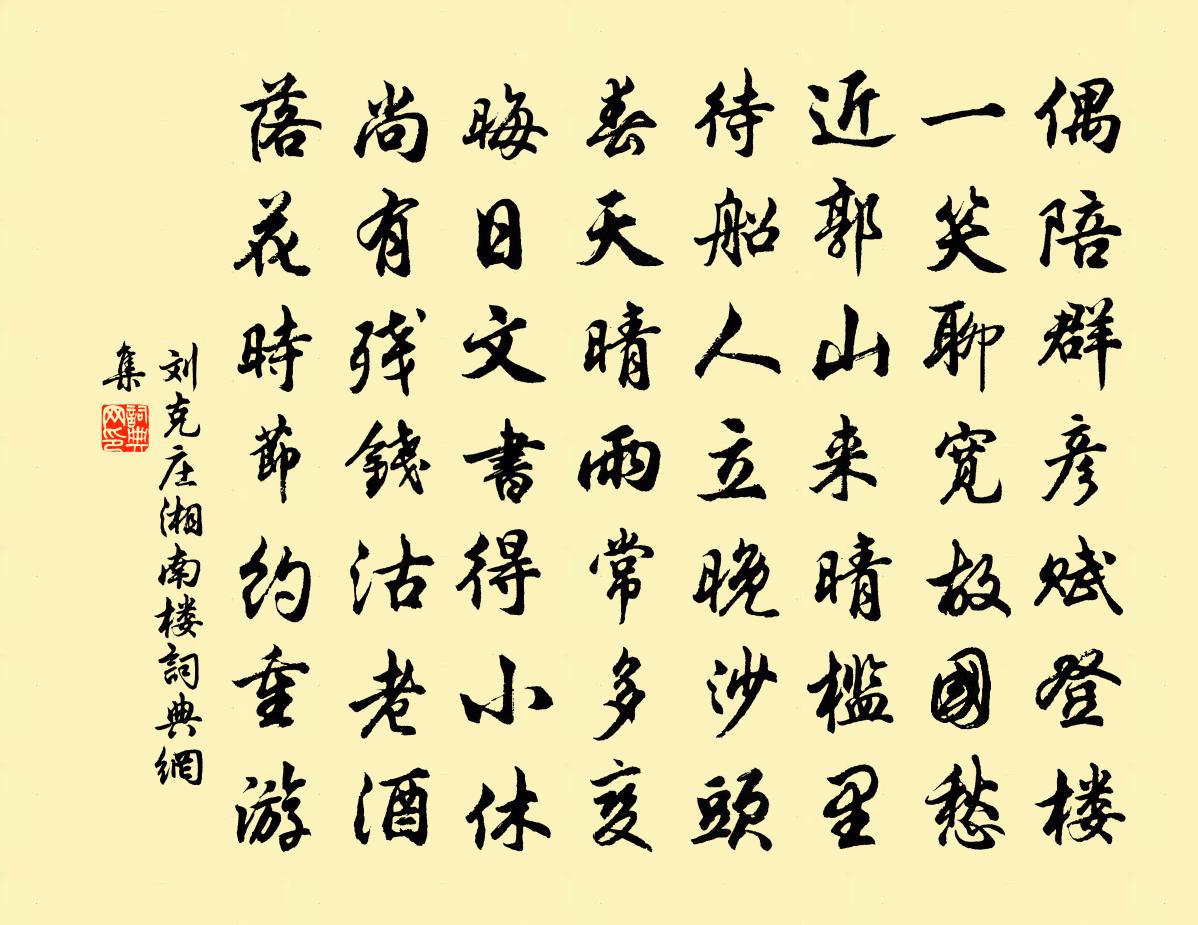 偶陪群彦赋登楼
一笑聊宽故國愁
近郭山来晴槛里
待船人立晚沙頭
春天晴雨常多变
晦日文書得小休
尚有残錢沽老酒
落花時節約重游
刘克庄湘南楼詞典網
集
詞典网印